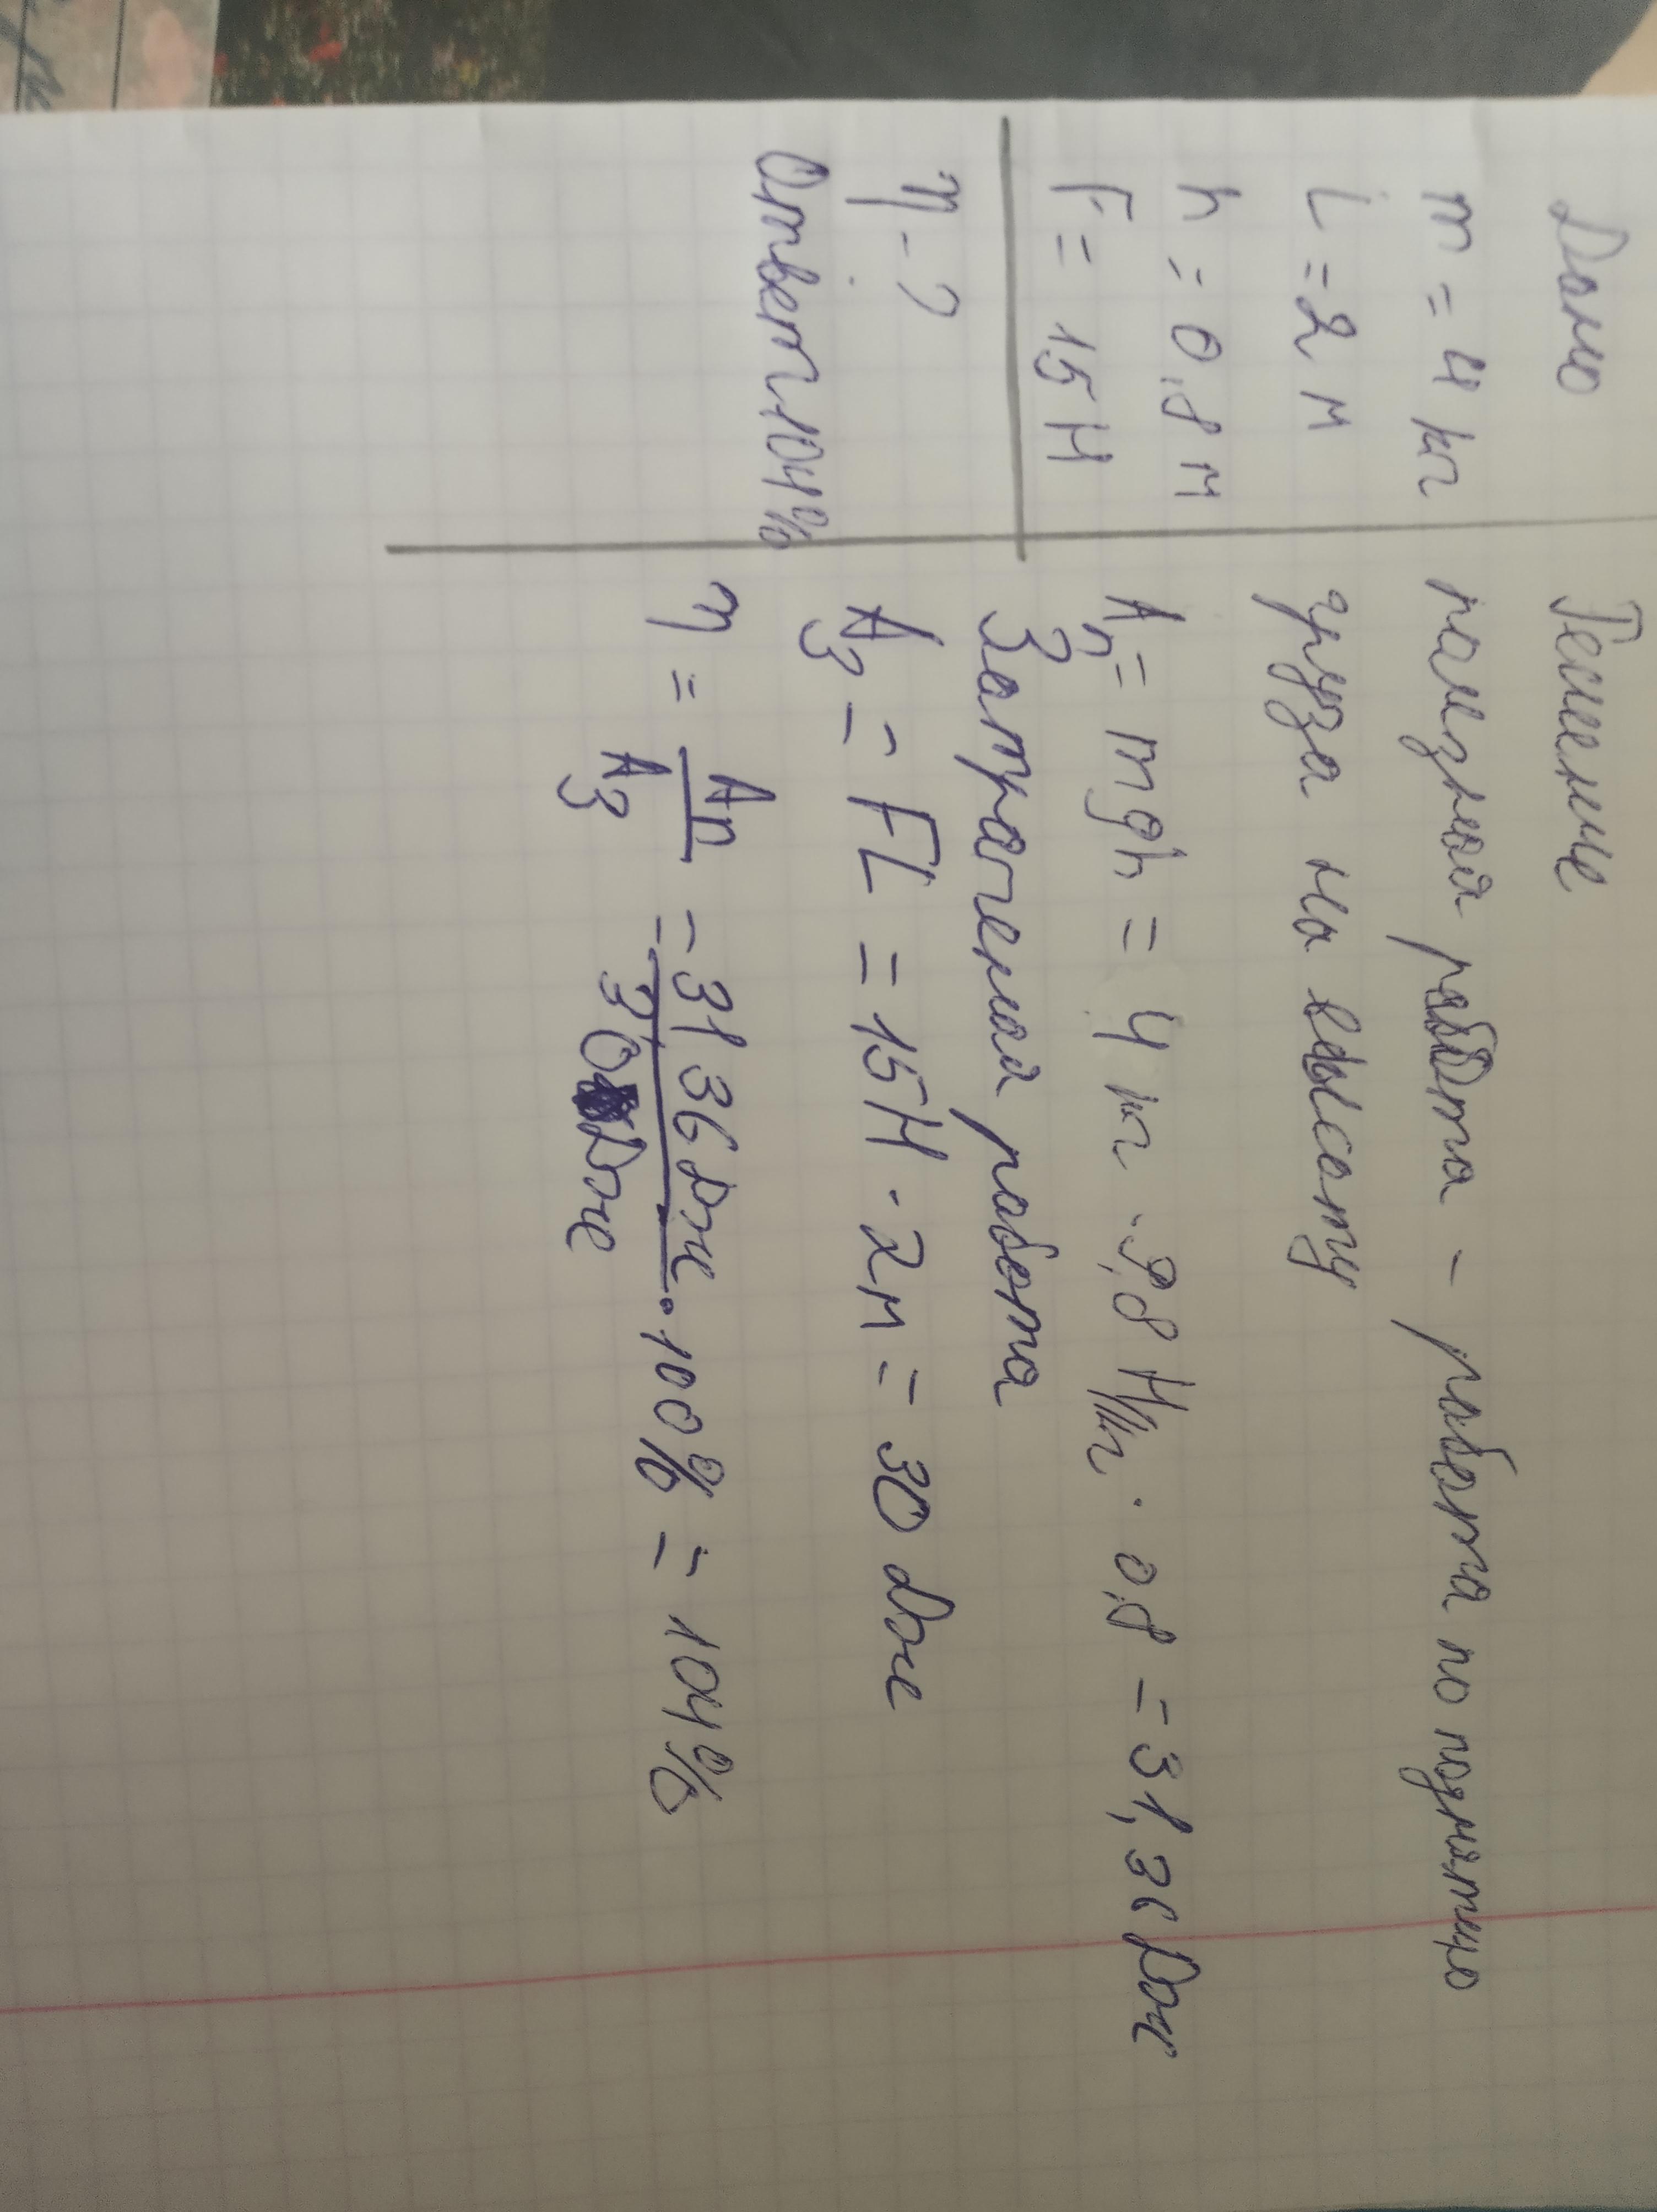 Дано
m = 4 кг
L = 2 м
h = 0,8 м
F = 15 Н
η - ?
Ответ 104%
Решение
полезная работа - работа по поднятию
груза на высоту
Aп = mgh = 4 кг · 9,8 Н/кг · 0,8 = 31,36 Дж
Затраченная работа
Aз = FL = 15Н · 2м = 30 Дж
η = Aп/Aз = 31,36 Дж/30 Дж · 100% = 104%